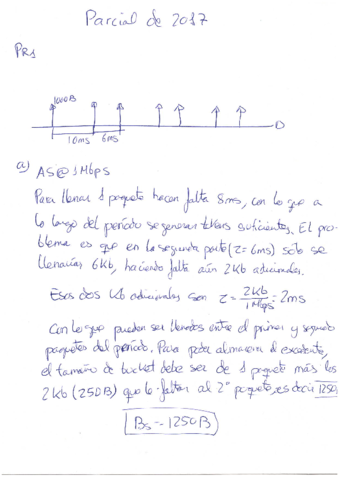 Parcial de 2017
PR1
1000B
10ms 6ms
a) AS@1Mbps
Para llenar 1 paquete hacen falta 8ms, con lo que a
lo largo del período se generan tokens suficientes. El pro-
blema es que en la segunda parte (τ=6ms) sólo se
llenarías 6Kb, haciendo falta aún 2Kb adicionales.
Esos dos Kb adicionales son τ = 2Kb / 1Mbps = 2ms
Con lo que pueden ser llenados entre el primer y segundo
paquetes del período. Para poder almacenar el excedente,
el tamaño de bucket debe ser de 1 paquete más los
2Kb (250B) que le faltan al 2º paquete, es decir 1250
Bs = 1250B